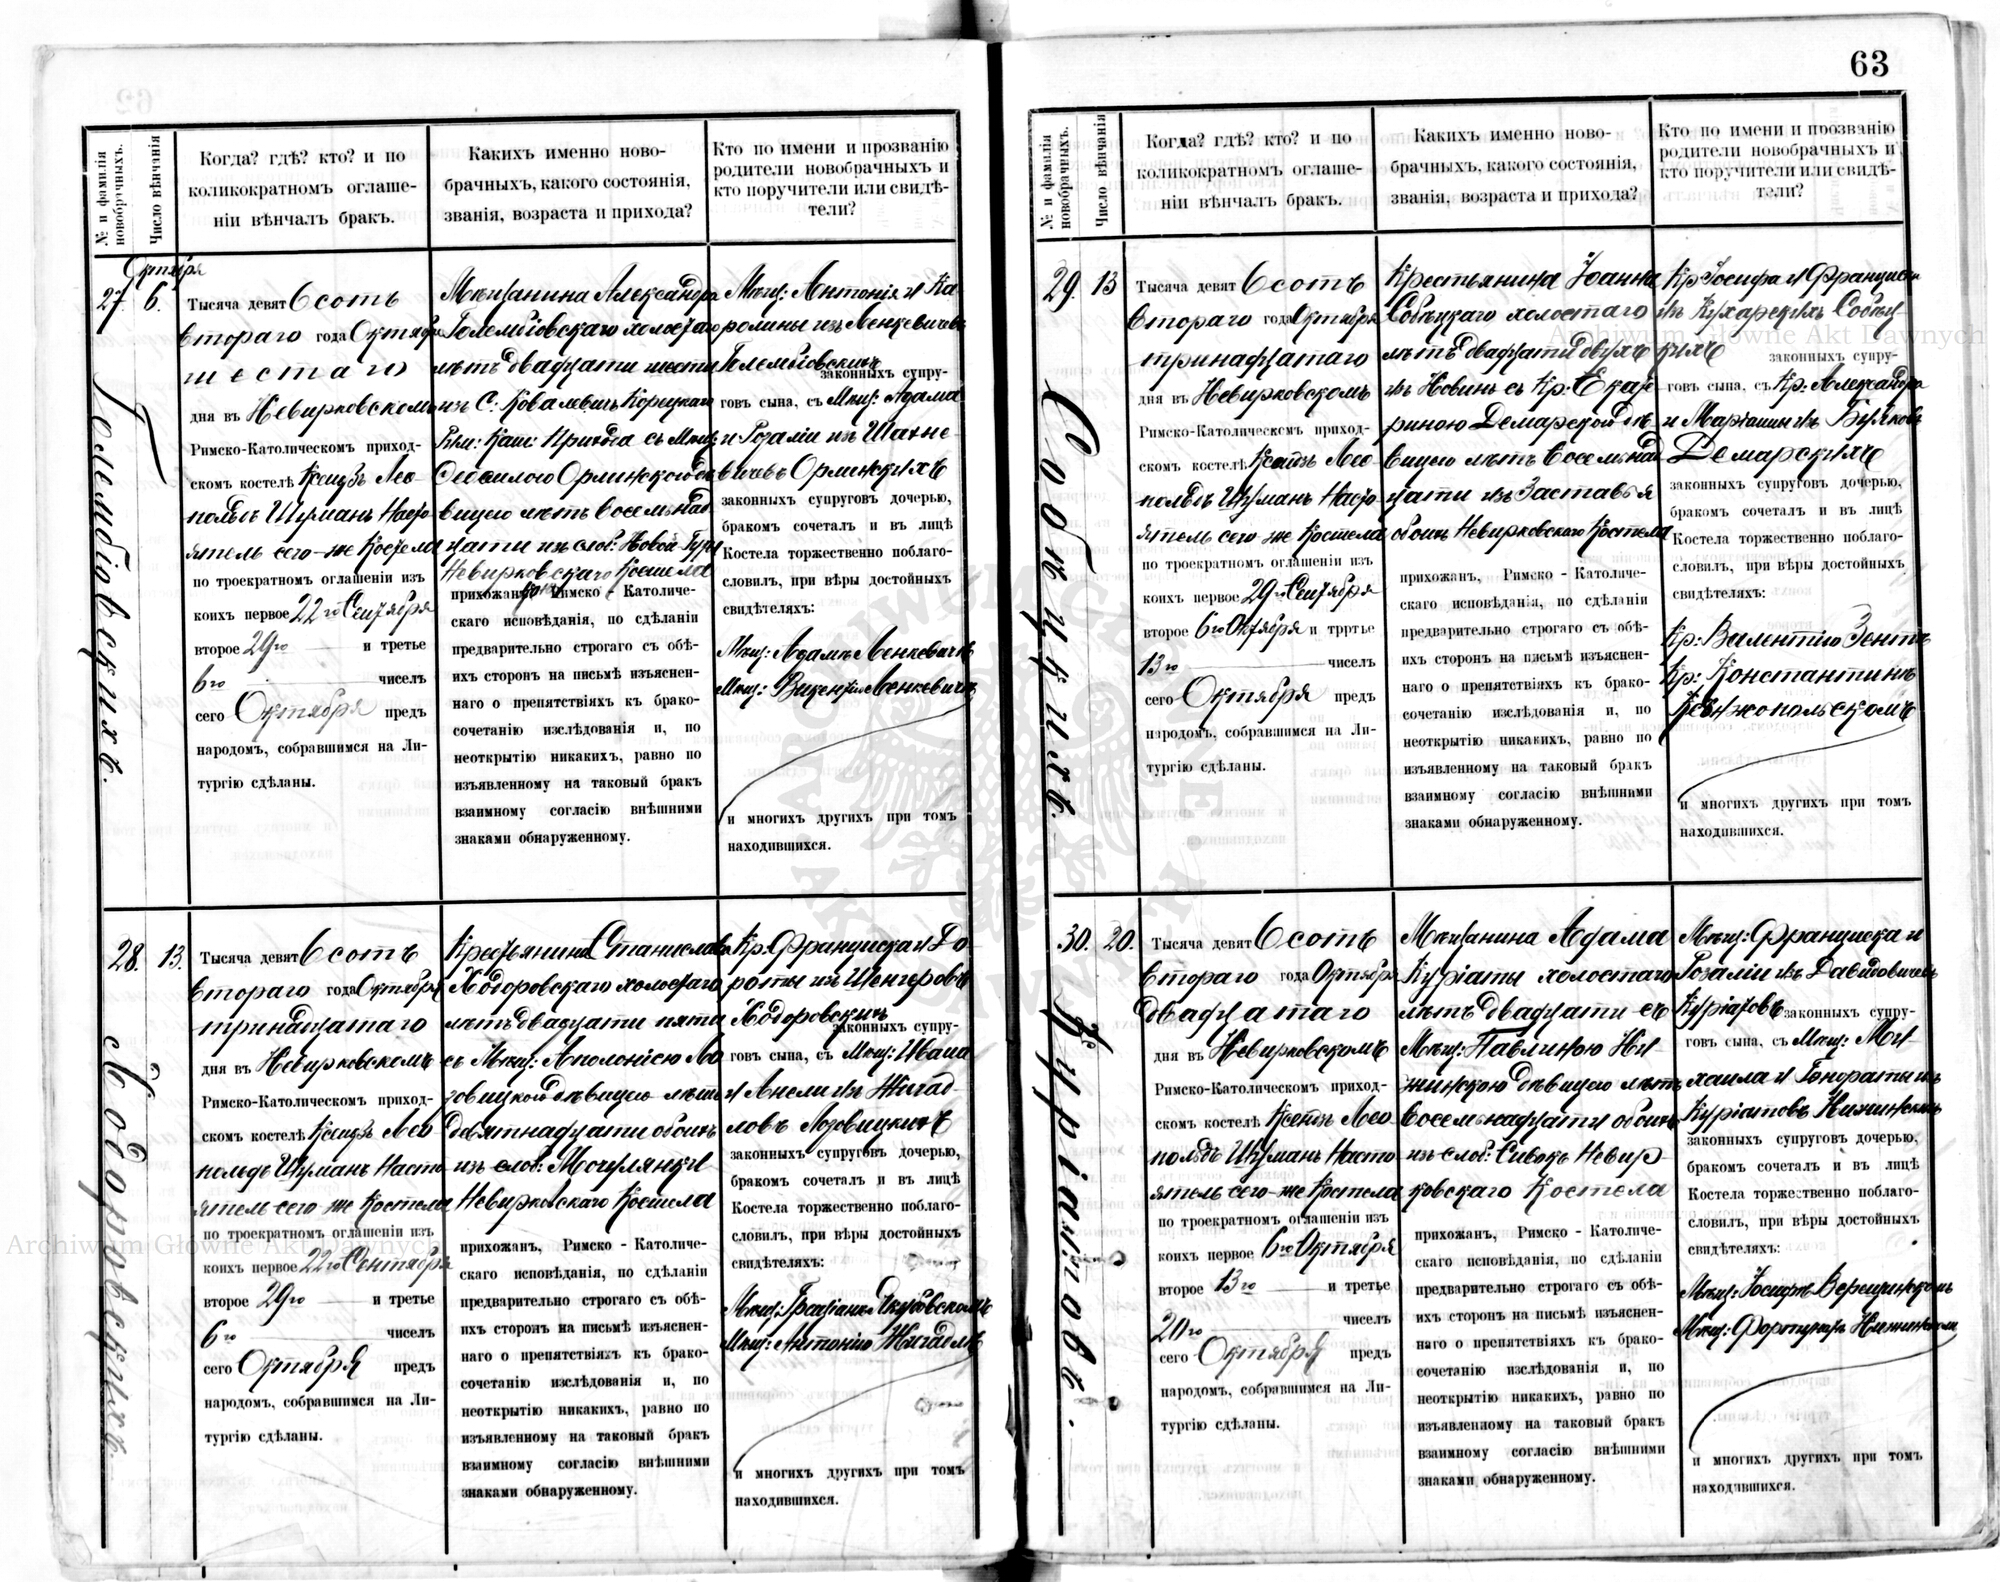 63
№ и фамилія новобрачныхъ.
Число вѣнчанія
Когда? гдѣ? кто? и по
коликократномъ оглаше-
ніи вѣнчалъ бракъ.
Какихъ именно ново-
брачныхъ, какого состоянія,
званія, возраста и прихода?
Кто по имени и прозванію
родители новобрачныхъ и
кто поручители или свидѣ-
тели?
Октября
27. 6.
Голембіовскихъ.
Тысяча девят сотъ
втораго года Октября
шестаго
дня въ Невирковскомъ
Римско-Католическомъ приход-
скомъ костелѣ Ксендзъ Лео-
польдъ Шуманъ Насто-
ятель сего-же Костела
по троекратномъ оглашеніи изъ
коихъ первое 22го Сентября
второе 29го и третье
6го чиселъ
сего Октября предъ
народомъ, собравшимся на Ли-
тургію сдѣланы.
Мѣщанина Александра
Голембіовскаго холостаго
лѣтъ двадцати шести
изъ с. Ковалевичъ Корецкаго
Рим: Кат: Прихода съ Мѣщ:
Орлинскою дѣ-
вицею лѣтъ восемьнад-
цати изъ слоб: Новой Гуты
Невирковскаго Костела
прихожанъ, Римско - Католиче-
скаго исповѣданія, по сдѣланіи
предварительно строгаго съ обѣ-
ихъ сторонъ на письмѣ изъяснен-
наго о препятствіяхъ къ брако-
сочетанію изслѣдованія и, по
неоткрытію никакихъ, равно по
изъявленному на таковый бракъ
взаимному согласію внѣшними
знаками обнаруженному.
Мѣщ: Антонія и Ка-
ролины изъ Ленкевичевъ
Голембіовскихъ
законныхъ супру-
говъ сына, съ Мѣщ: Адама
и Розаліи изъ Шахне-
вичевъ Орлинскихъ
законныхъ супруговъ дочерью,
бракомъ сочеталъ и въ лицѣ
Костела торжественно поблаго-
словилъ, при вѣры достойныхъ
свидѣтеляхъ:
Мѣщ: Адамъ Ленкевичъ
Мѣщ: Викентій Ленкевичъ
и многихъ другихъ при томъ
находившихся.
28. 13.
Ходоровскихъ.
Тысяча девят сотъ
втораго года Октября
тринадцатаго
дня въ Невирковскомъ
Римско-Католическомъ приход-
скомъ костелѣ Ксендзъ Лео-
польдъ Шуманъ Насто-
ятель сего-же Костела
по троекратномъ оглашеніи изъ
коихъ первое 22го Сентября
второе 29го и третье
6го чиселъ
сего Октября предъ
народомъ, собравшимся на Ли-
тургію сдѣланы.
Крестьянина Станислава
Ходоровскаго холостаго
лѣтъ двадцати пяти
съ Мѣщ: Аполоніею Ло-
зовицкой дѣвицею лѣтъ
девятнадцати обоихъ
изъ слоб: Мочулянки
Невирковскаго Костела
прихожанъ, Римско - Католиче-
скаго исповѣданія, по сдѣланіи
предварительно строгаго съ обѣ-
ихъ сторонъ на письмѣ изъяснен-
наго о препятствіяхъ къ брако-
сочетанію изслѣдованія и, по
неоткрытію никакихъ, равно по
изъявленному на таковый бракъ
взаимному согласію внѣшними
знаками обнаруженному.
Кр: Франциска и До-
роты изъ Шенгеровъ
Ходоровскихъ
законныхъ супру-
говъ сына, съ Мѣщ: Ивана
и Анели изъ Жигад-
ловъ Лозовицкихъ
законныхъ супруговъ дочерью,
бракомъ сочеталъ и въ лицѣ
Костела торжественно поблаго-
словилъ, при вѣры достойныхъ
свидѣтеляхъ:
Мѣщ:
Мѣщ: Антонію Жигадлѣ
и многихъ другихъ при томъ
находившихся.
№ и фамилія новобрачныхъ.
Число вѣнчанія
Когда? гдѣ? кто? и по
коликократномъ оглаше-
ніи вѣнчалъ бракъ.
Какихъ именно ново-
брачныхъ, какого состоянія,
званія, возраста и прихода?
Кто по имени и прозванію
родители новобрачныхъ и
кто поручители или свидѣ-
тели?
29. 13
Собѣцкихъ.
Тысяча девят сотъ
втораго года Октября
тринадцатаго
дня въ Невирковскомъ
Римско-Католическомъ приход-
скомъ костелѣ Ксендзъ Лео-
польдъ Шуманъ Насто-
ятель сего-же Костела
по троекратномъ оглашеніи изъ
коихъ первое 29го Сентября
второе 6го Октября и тртье
13го чиселъ
сего Октября предъ
народомъ, собравшимся на Ли-
тургію сдѣланы.
Крестьянина Іоанна
Собѣцкаго холостаго
лѣтъ двадцати двухъ
изъ Новинъ съ Кр: Екате-
риною Демарской дѣ-
вицею лѣтъ восемьнад-
цати изъ Заставья
обоихъ Невирковскаго Костела
прихожанъ, Римско - Католиче-
скаго исповѣданія, по сдѣланіи
предварительно строгаго съ обѣ-
ихъ сторонъ на письмѣ изъяснен-
наго о препятствіяхъ къ брако-
сочетанію изслѣдованія и, по
неоткрытію никакихъ, равно по
изъявленному на таковый бракъ
взаимному согласію внѣшними
знаками обнаруженному.
Кр: Іосифа и Франциски
изъ Кухарскихъ Собѣц-
кихъ законныхъ супру-
говъ сына, съ Кр: Александра
и Маріанны изъ
Демарскихъ
законныхъ супруговъ дочерью,
бракомъ сочеталъ и въ лицѣ
Костела торжественно поблаго-
словилъ, при вѣры достойныхъ
свидѣтеляхъ:
Кр: Валентію
Кр: Константинѣ
и многихъ другихъ при томъ
находившихся.
30. 20.
Куріатовъ.
Тысяча девят сотъ
втораго года Октября
двадцатаго
дня въ Невирковскомъ
Римско-Католическомъ приход-
скомъ костелѣ Ксендзъ Лео-
польдъ Шуманъ Насто-
ятель сего-же Костела
по троекратномъ оглашеніи изъ
коихъ первое 6го Октября
второе 13го и третье
20го чиселъ
сего Октября предъ
народомъ, собравшимся на Ли-
тургію сдѣланы.
Мѣщанина Адама
Куріаты холостаго
лѣтъ двадцати съ
Мѣщ: Павлиною Ни-
жинскою дѣвицею лѣтъ
восемьнадцати обоихъ
изъ слоб: Сивокъ Невир-
ковскаго Костела
прихожанъ, Римско - Католиче-
скаго исповѣданія, по сдѣланіи
предварительно строгаго съ обѣ-
ихъ сторонъ на письмѣ изъяснен-
наго о препятствіяхъ къ брако-
сочетанію изслѣдованія и, по
неоткрытію никакихъ, равно по
изъявленному на таковый бракъ
взаимному согласію внѣшними
знаками обнаруженному.
Мѣщ: Франциска и
Розаліи изъ Давидовичевъ
Куріатовъ законныхъ супру-
говъ сына, съ Мѣщ: Ми-
хаила и Гонораты изъ
Куріатовъ Нижинскихъ
законныхъ супруговъ дочерью,
бракомъ сочеталъ и въ лицѣ
Костела торжественно поблаго-
словилъ, при вѣры достойныхъ
свидѣтеляхъ:
Мѣщ: Іосифѣ Верещинскомъ
Мѣщ: Фортунатѣ
и многихъ другихъ при томъ
находившихся.
Archiwum Główne Akt Dawnych
Archiwum Główne Akt Dawnych
ARCHIWUM GŁÓWNE AKT DAWNYCH